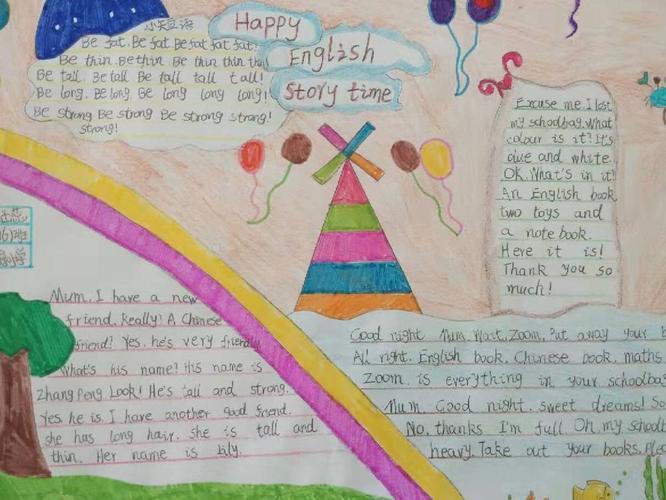 Happy
English
Story time
Be fat. Be fat Be fat fat fat!
Be thin. Be thin Be thin thin
Be tall. Be tall Be tall tall tall!
Be long. Be long Be long long long!
Be strong Be strong Be strong strong
strong!
Excuse me I lost
my schoolbag. What
colour is it? It's
blue and white.
OK. What's in it?
An English book,
two toys and
a note book.
Here it is!
Thank you so
much!
Mum, I have a new
friend. Really? A Chinese
friend? Yes, he's very friendly.
What's his name? His name is
Zhang Peng. Look! He's tall and strong.
Yes, he is. I have another good friend.
She has long hair. She is tall and
thin. Her name is
Good night Mum. Wait, Zoom. Put away your
All right. English book, Chinese book, maths
Zoom, is everything in your
Mum. Good night. sweet dreams!
No, thanks I'm full Oh, my
heavy. Take out your books,